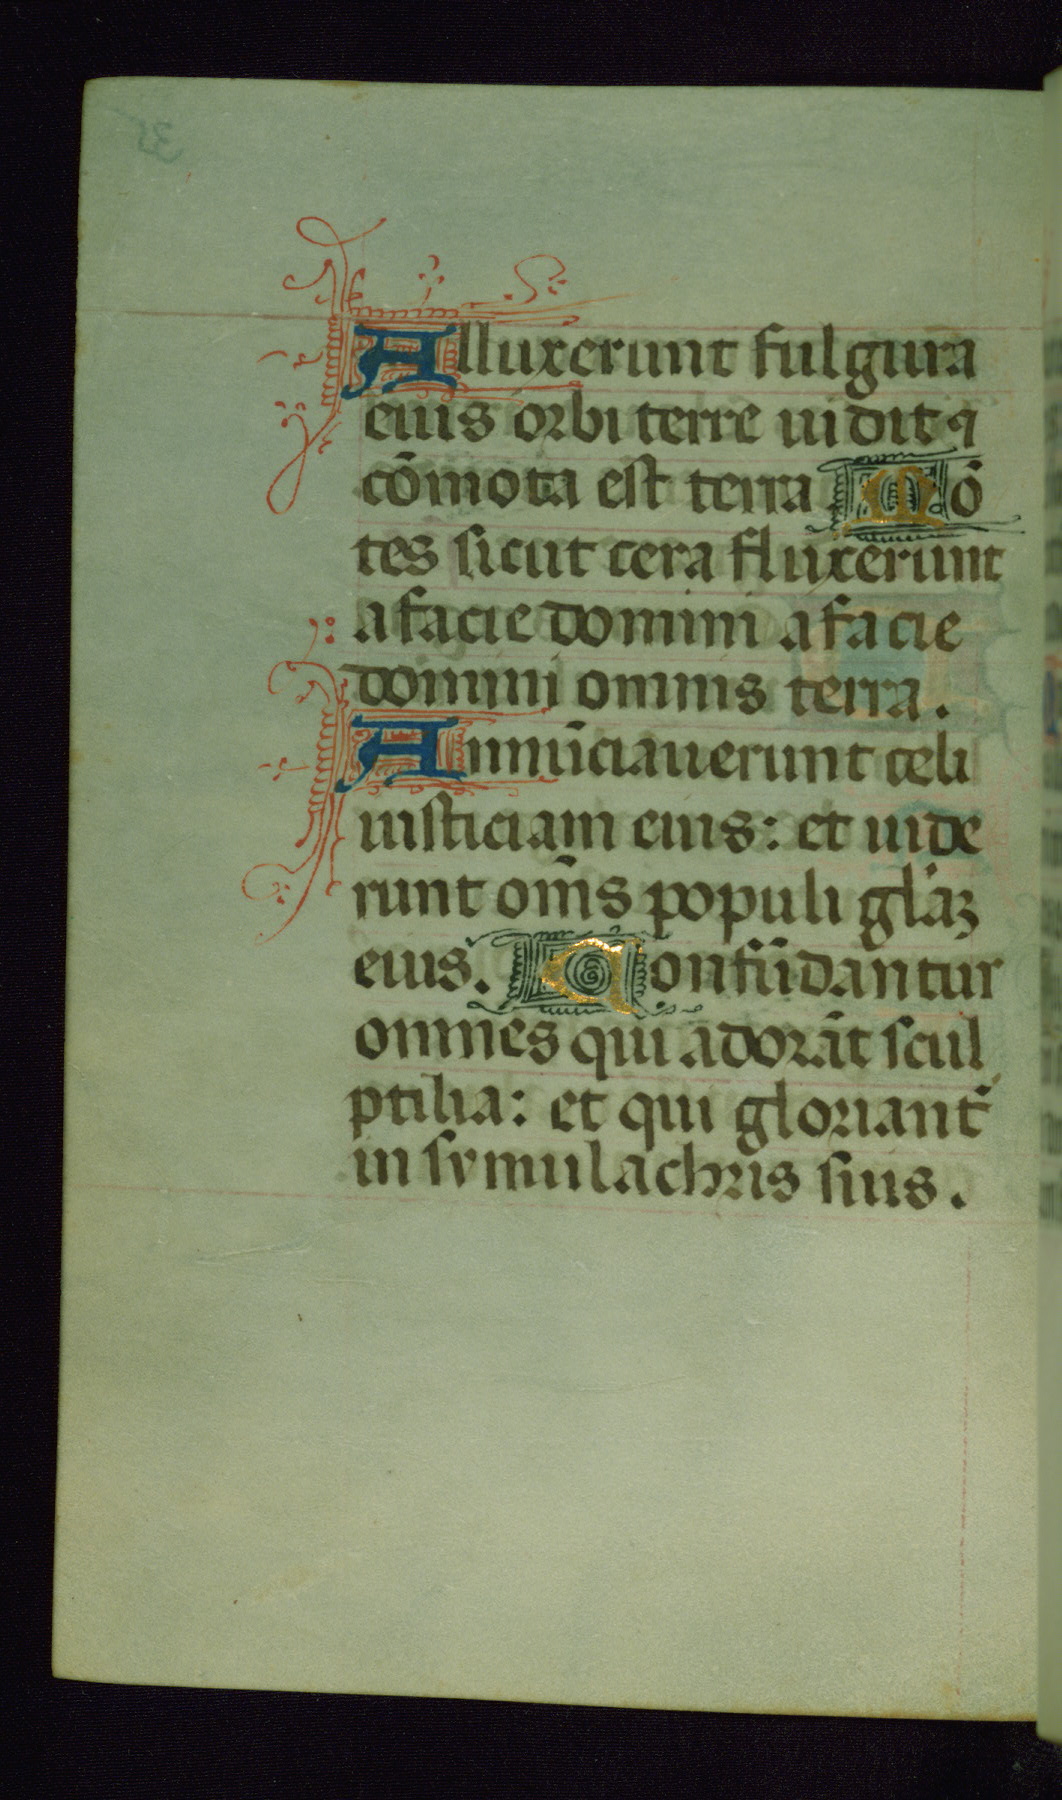 Alluxerunt fulgura
eius orbi terre uidit ꝯ
cōmota est terra. Mō
tes sicut cera fluxerunt
a facie domini a facie
domini omnis terra.
Annūciauerunt celi
iusticiam eius: et uide
runt om̄s populi gl̄aꝫ
eius. Confūdantur
omnes qui adorāt scul
ptilia: et qui gloriant̄
in symulachris suis.